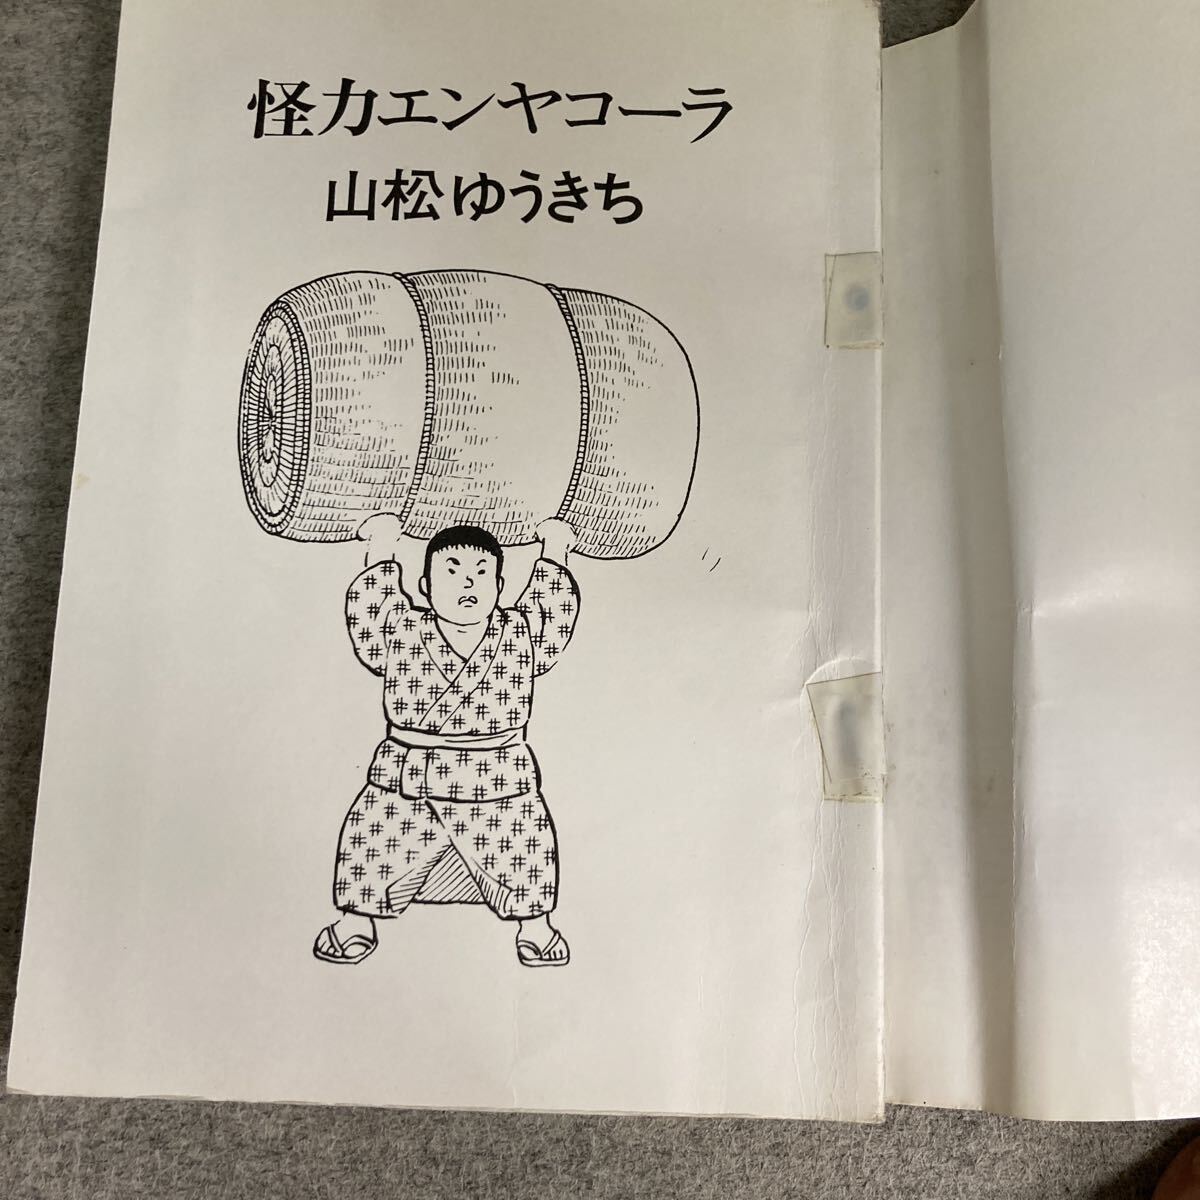 怪力エンヤコーラ
山松ゆうきち